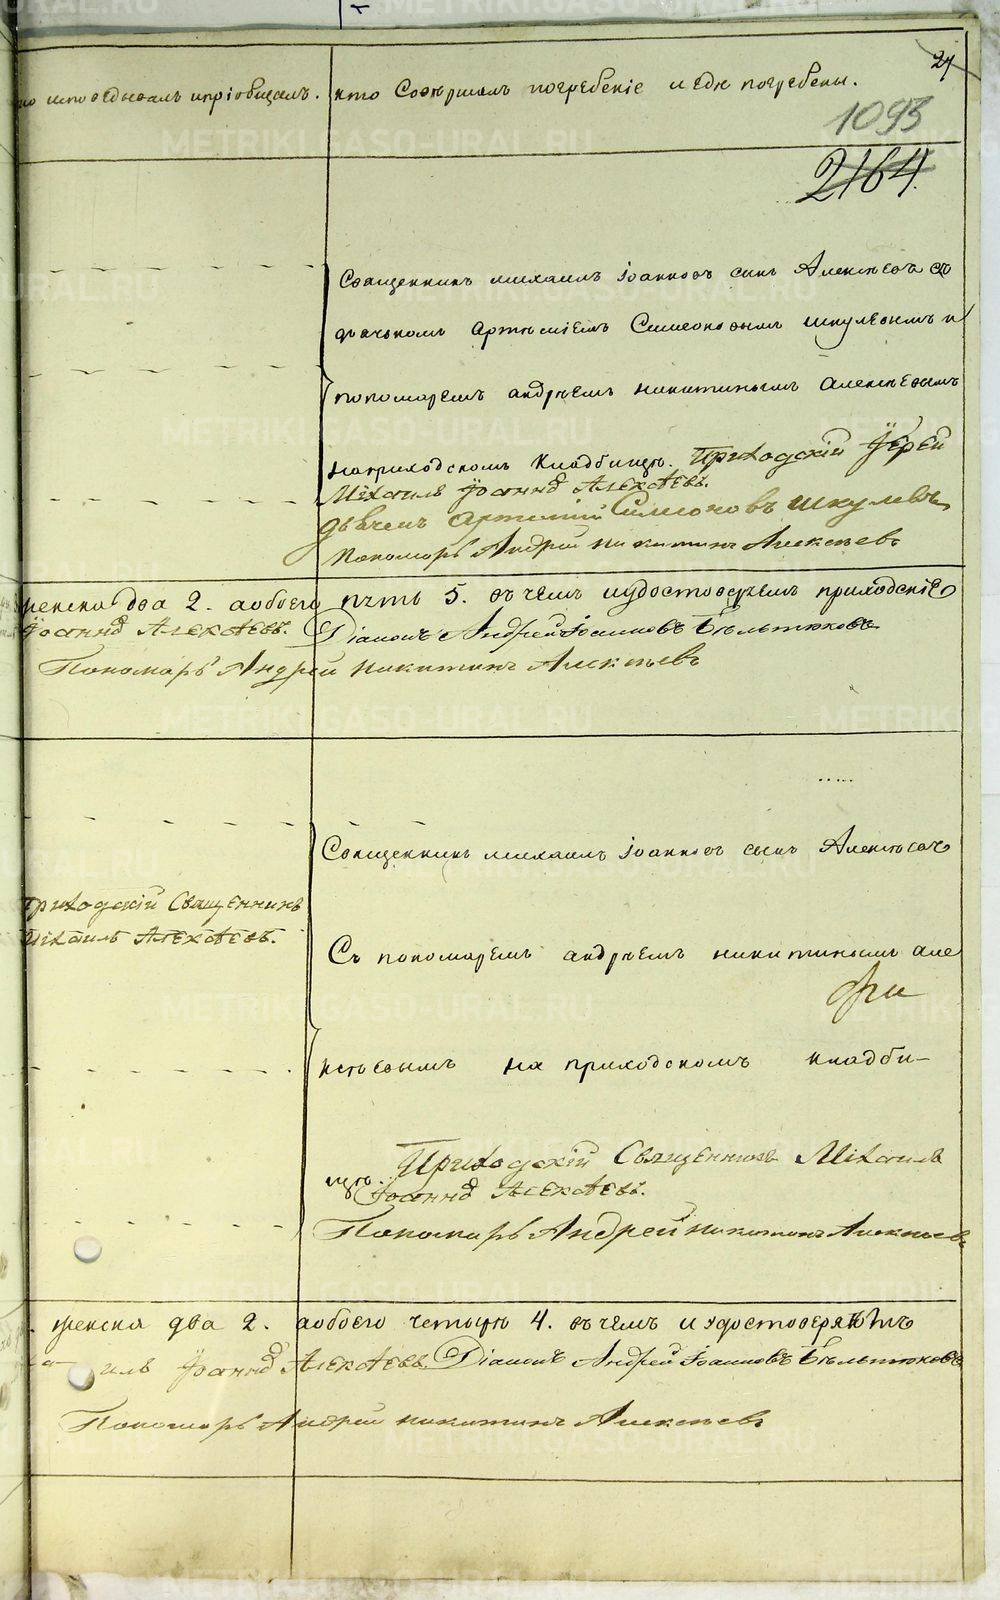 27
кто исповѣдывалъ ипріобщалъ. кто Совѣршалъ погребеніе игдѣ погребены.
1093
2164.
Священникъ михаилъ іоанновъ синъ Алексѣевъ съ
дьячкомъ артѣміемъ Симеоновымъ шкулевымъ и
пономаремъ андрѣемъ никитинымъ алексѣевымъ
наприходскомъ кладбищѣ. Приходскій Іерей
Міхаилъ Іоаннд Алеѯѣевъ.
дьячекъ артемій Симеоновъ шкулевъ
Пономарь Андрей никитинъ Алексѣевъ
женска два 2. аобоего пѣть 5. въ чемъ иудостовѣряемъ приходскіе
Іоаннд Алеѯѣевъ. Діаконъ Андрей Іоанновъ Бѣльтюковъ
Пономарь Андрей никитинъ Алексѣевъ
Священникъ михаилъ іоанновъ сынъ Алексѣевъ
приходскій Священникъ
Міхаилъ Алеѯѣевъ.
Съ пономаремъ андрѣемъ никитинымъ але
ксѣевымъ на приходскомъ кладби-
щѣ. Приходскій Священникъ Міхаилъ
Іоаннд Алеѯѣевъ.
Пономарь Андрей никитинъ Алексѣевъ
женска два 2. аобоего четырѣ 4. въ чемъ и удостоверяѣмъ
илъ Іоаннд Алеѯѣевъ. Діаконъ Андрей Іоанновъ Бѣльтюковъ
Пономарь Андрей никитинъ Алексѣевъ